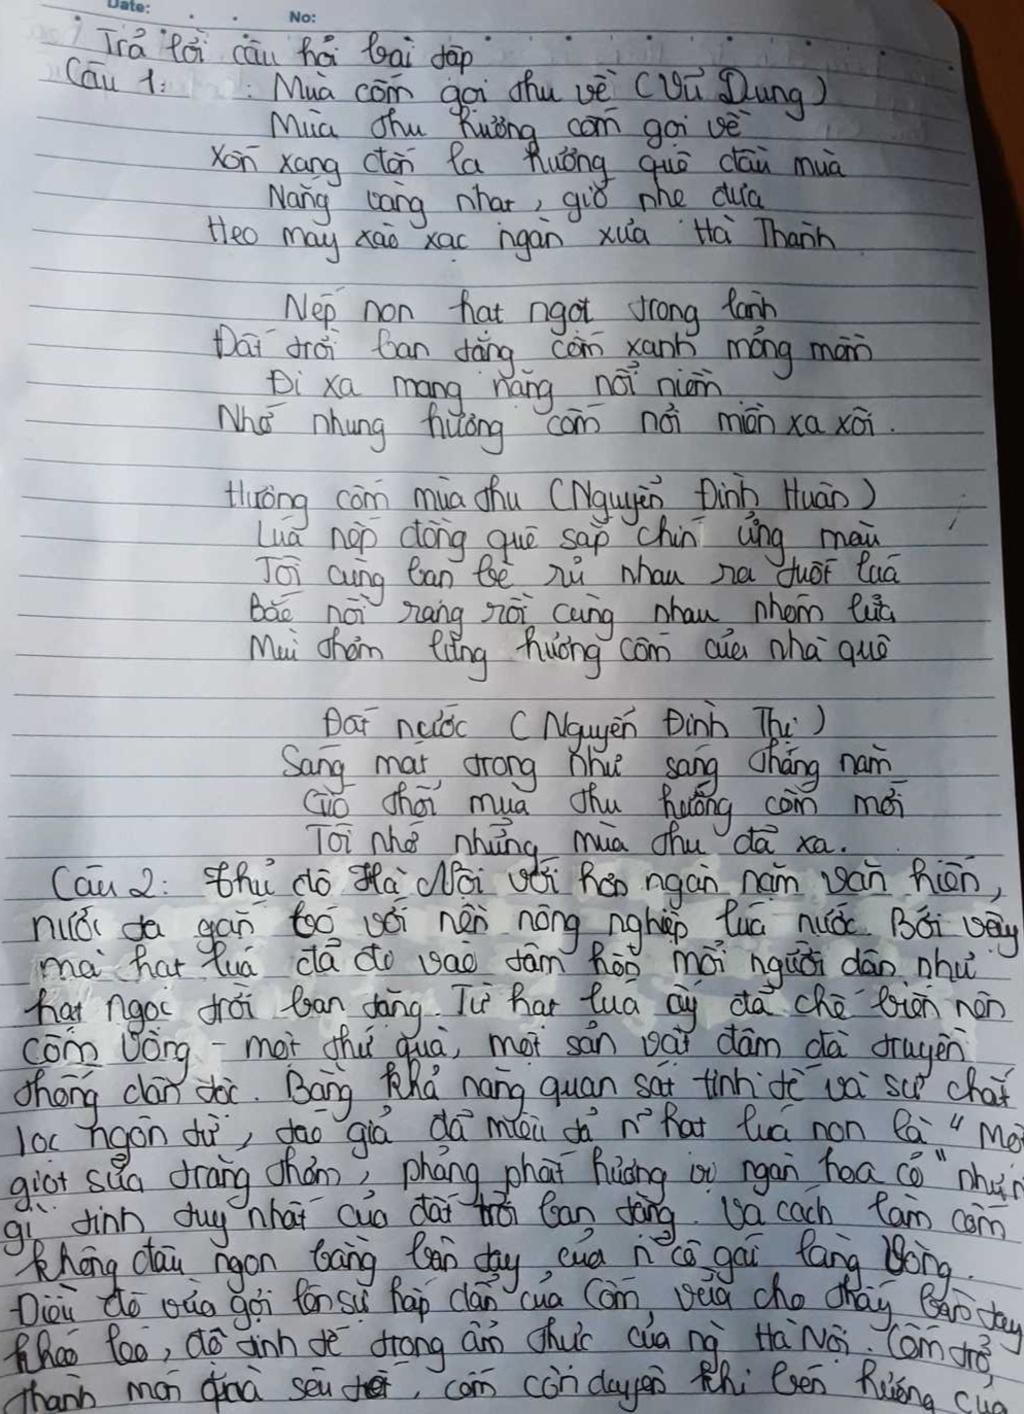 Date: No:
Trả lời câu hỏi bài tập
Câu 1: Mùa cốm gọi thu về (Vũ Dung)
Mùa thu hương cốm gọi về
Xốn xang đón lá hương quê đầu mùa
Nắng vàng nhạt, gió nhẹ đưa
Heo may xào xạc ngàn xưa Hà Thành
Nếp non hạt ngọt trong lành
Đất trời ban tặng cốm xanh mỏng mềm
Đi xa mang nặng nỗi niềm
Nhớ nhung hương cốm nơi miền xa xôi.
Hương cốm mùa thu (Nguyễn Đình Huân)
Lúa nếp đồng quê sắp chín ửng màu
Tôi cùng bạn bè rủ nhau ra tuốt lúa
Bắc nồi rang rồi cùng nhau nhóm lửa
Mùi thơm lừng hương cốm của nhà quê
Đất nước (Nguyễn Đình Thi)
Sáng mát trong như sáng tháng năm
Gió thổi mùa thu hương cốm mới
Tôi nhớ những mùa thu đã xa.
Câu 2: thủ đô Hà Nội với hơn ngàn năm văn hiến,
nước ta gắn bó với nền nông nghiệp lúa nước. Bởi vậy
mà hạt lúa đã đi vào tâm hồn mỗi người dân như
hạt ngọc trời ban tặng. Từ hạt lúa ấy đã chế biến nên
cốm Vòng - một thứ quà, một sản vật đậm đà truyền
thống dân tộc. Bằng khả năng quan sát tinh tế và sự chắt
lọc ngôn từ, tác giả đã miêu tả n~ hạt lúa non là "Một
giọt sữa trắng thơm, phảng phất hương vị ngàn hoa cỏ" những
gì tinh túy nhất của đất trời ban tặng. Và cách làm cốm
không đâu ngon bằng bàn tay của n~ cô gái làng Vòng.
Điều đó vừa gợi lên sự hấp dẫn của Cốm, vừa cho thấy bàn tay
khéo léo, độ tinh tế trong ẩm thực của ng Hà Nội. Cốm trở
thành món quà sêu tết, cốm còn duyên khi bén hương của